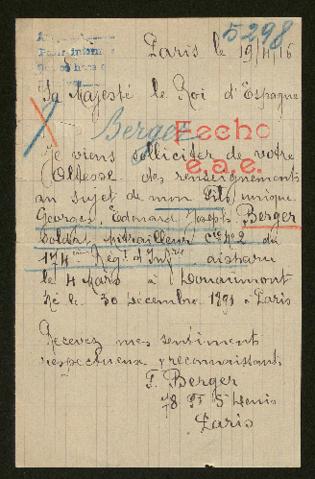 5298
Paris le 19/4/16
Sa Majesté le Roi d'Espagne
Berger
Fecho
e.a.e.
Je viens solliciter de votre
Altesse des renseignements
au sujet de mon fils unique
Georges, Edouard Joseph Berger
Soldat mitrailleur cie No 2 du
174 ème Rég.t d'Inf.rie disparu
le 4 Mars à Douaumont
Né le 30 décembre 1891 à Paris
Recevez mes sentiment
respectueux & reconnaissant
F. Berger
78 Fg St Denis
Paris